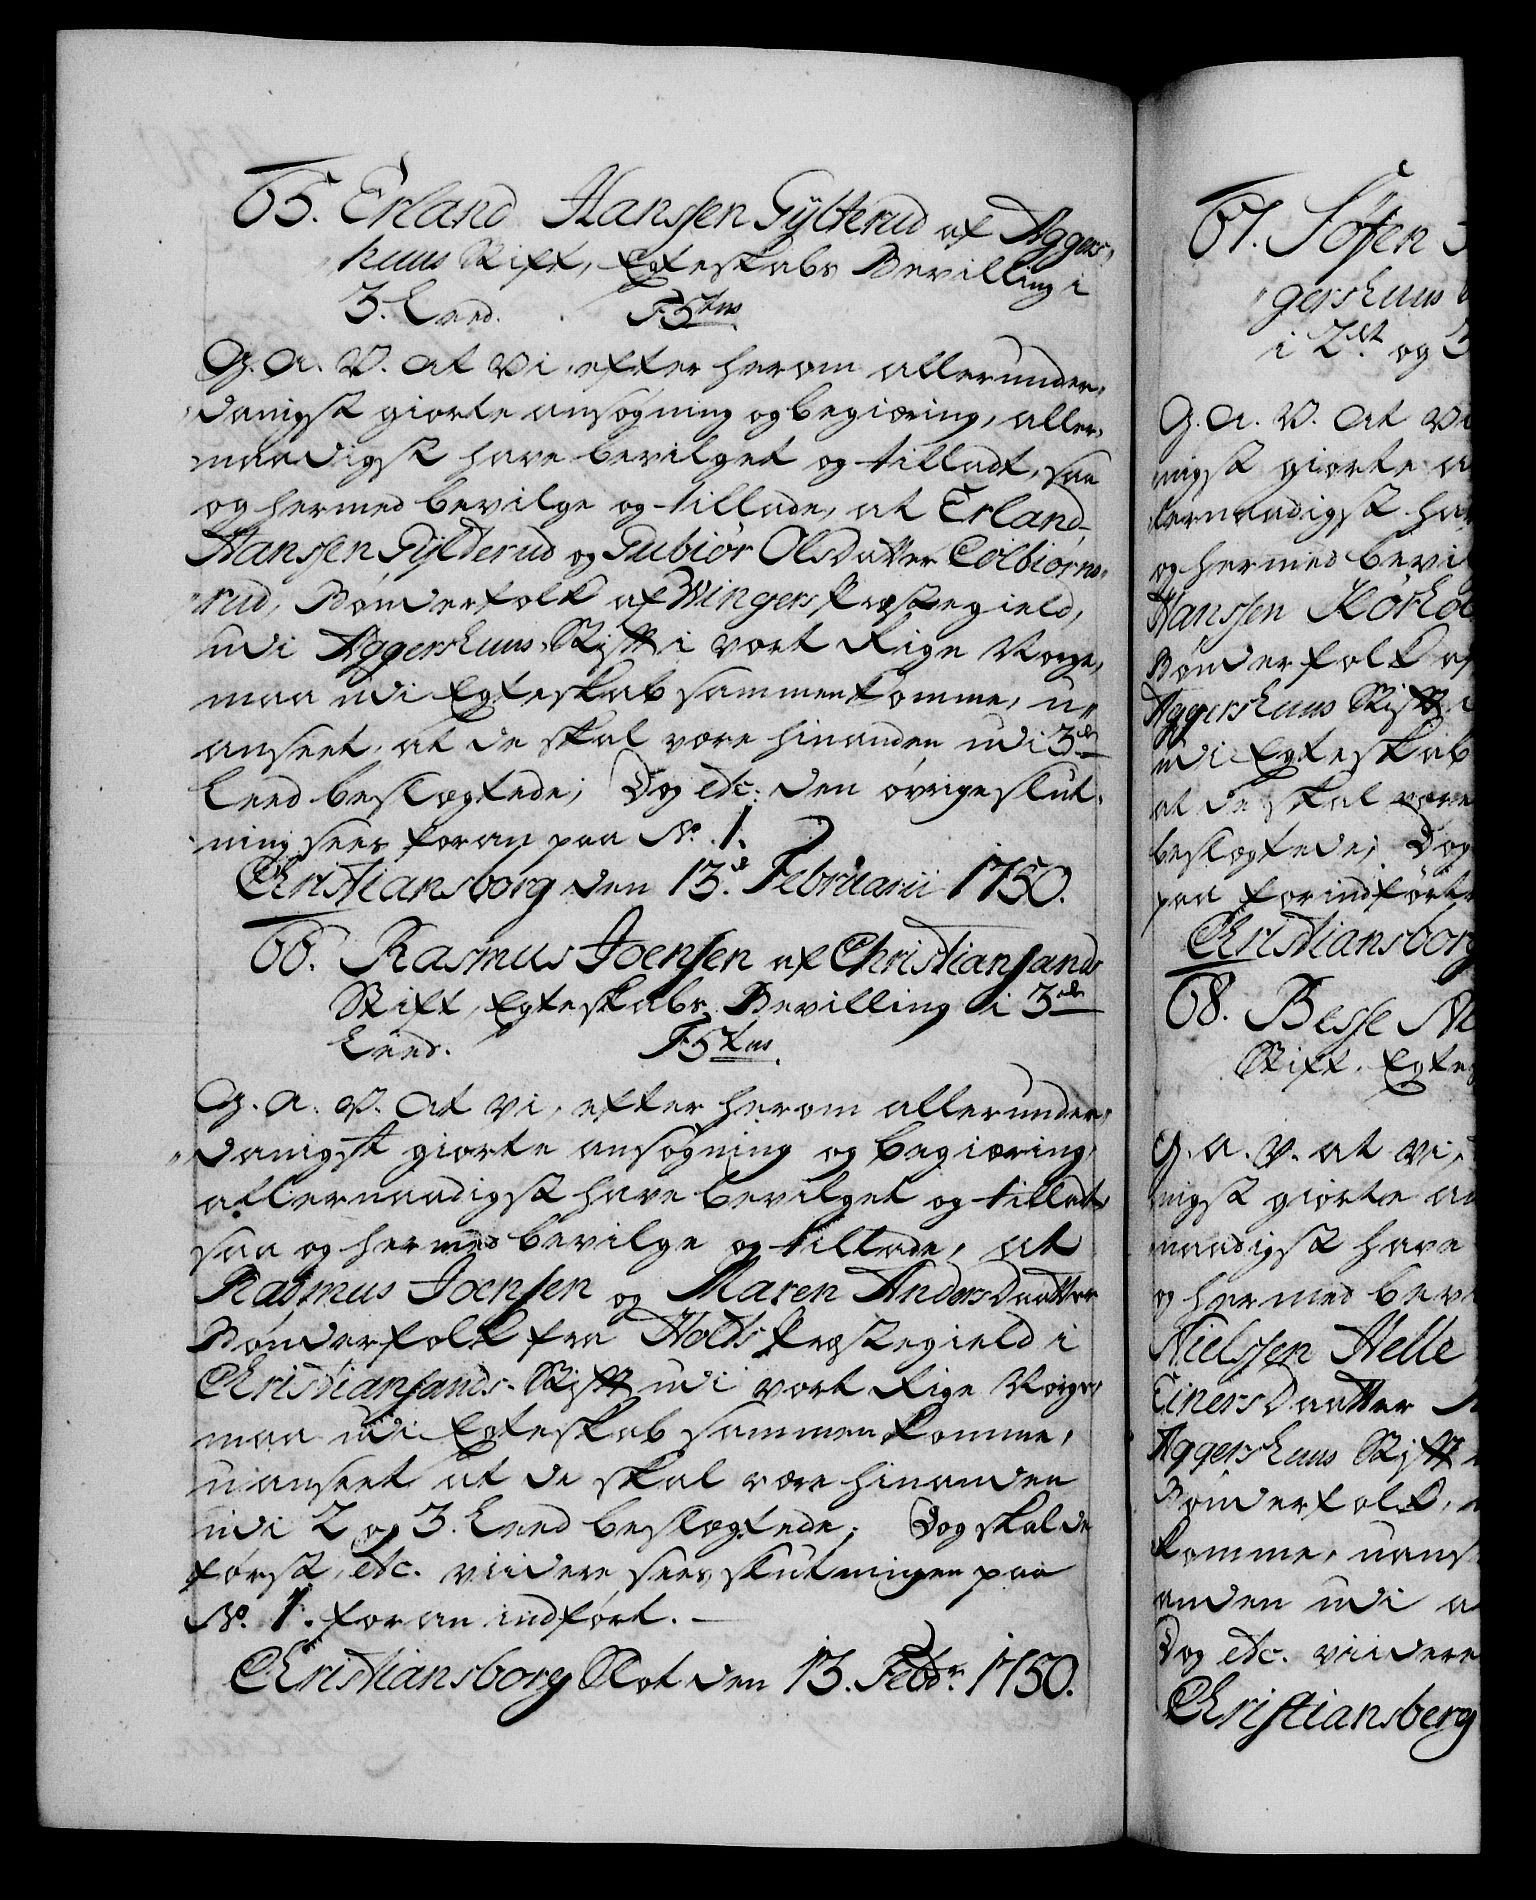 65. Erland Hanssen Gylterud af Agger,
huus Stift, Egteskabs Bevilling i
3. Leed. F. 5tus
G. A. V. At vi, efter herom allerunder,
danigst giorte ansøgning og begiæring, aller,
naadigst have bevilget og tilladt, saa
og hermed bevilge og tillade, at Erland
Hanssen Gylderud og Gubiør Olsdatter Colbiørns,
rud, Bønderfolk af Wingers Præstegield,
udi Aggershuus Stift i vort Rige Norge,
maa udi Egteskab sammenkomme, u,,
anseet, at de skal være hinanden udi 3de
Leed beslægtede; Dog etc: den øvrige slut,
ning sees foran paa No. 1.
Christiansborg den 13d. Februarii 1750.
66. Rasmus Joensen af Christiansands
Stift, Egteskabs Bevilling i 3de
Leed. F. 5tus.
G. A. V. At vi, efter herom allerunder,
danigst giorte ansøgning og begiæring,
allernaadigst have bevilget og tilladt,
saa og hermed bevilge og tillade, at
Rasmus Joensen og Maren Andersdaatter
Bønderfolk fra Holts Præstegield i
Christiansands Stift udi vort Rige Norge,
maa udi Egteskab sammenkomme,
uanseet at de skal være hinanden
udi 2 og 3. Leed beslægtede; Dog skal de
først, etc. viidere sees slutningen paa
No. 1. foran indført.
Christiansborg Slot den 13. Febr. 1750.
67. Søfen
gershuus
i 2det og 3
G. A. V. At vi
nigst giorte
lernaadigst ha
og hermed bevil
Hanssen
Bønderfolk af
Aggershuus Stift i
udi Egteskab
at de skal være
beslægtede; Dog
paa forindførte
Christiansborg
68. Besse
Stift, Egtes
G. A. V. at vi,
nigst giorte
naadigst have
og hermed bevi
Nielssen Helle
Einersdaatter
Aggershuus Stift
Bønderfolk,
komme, uans
anden udi
Dog etc. viidere
Christiansberg